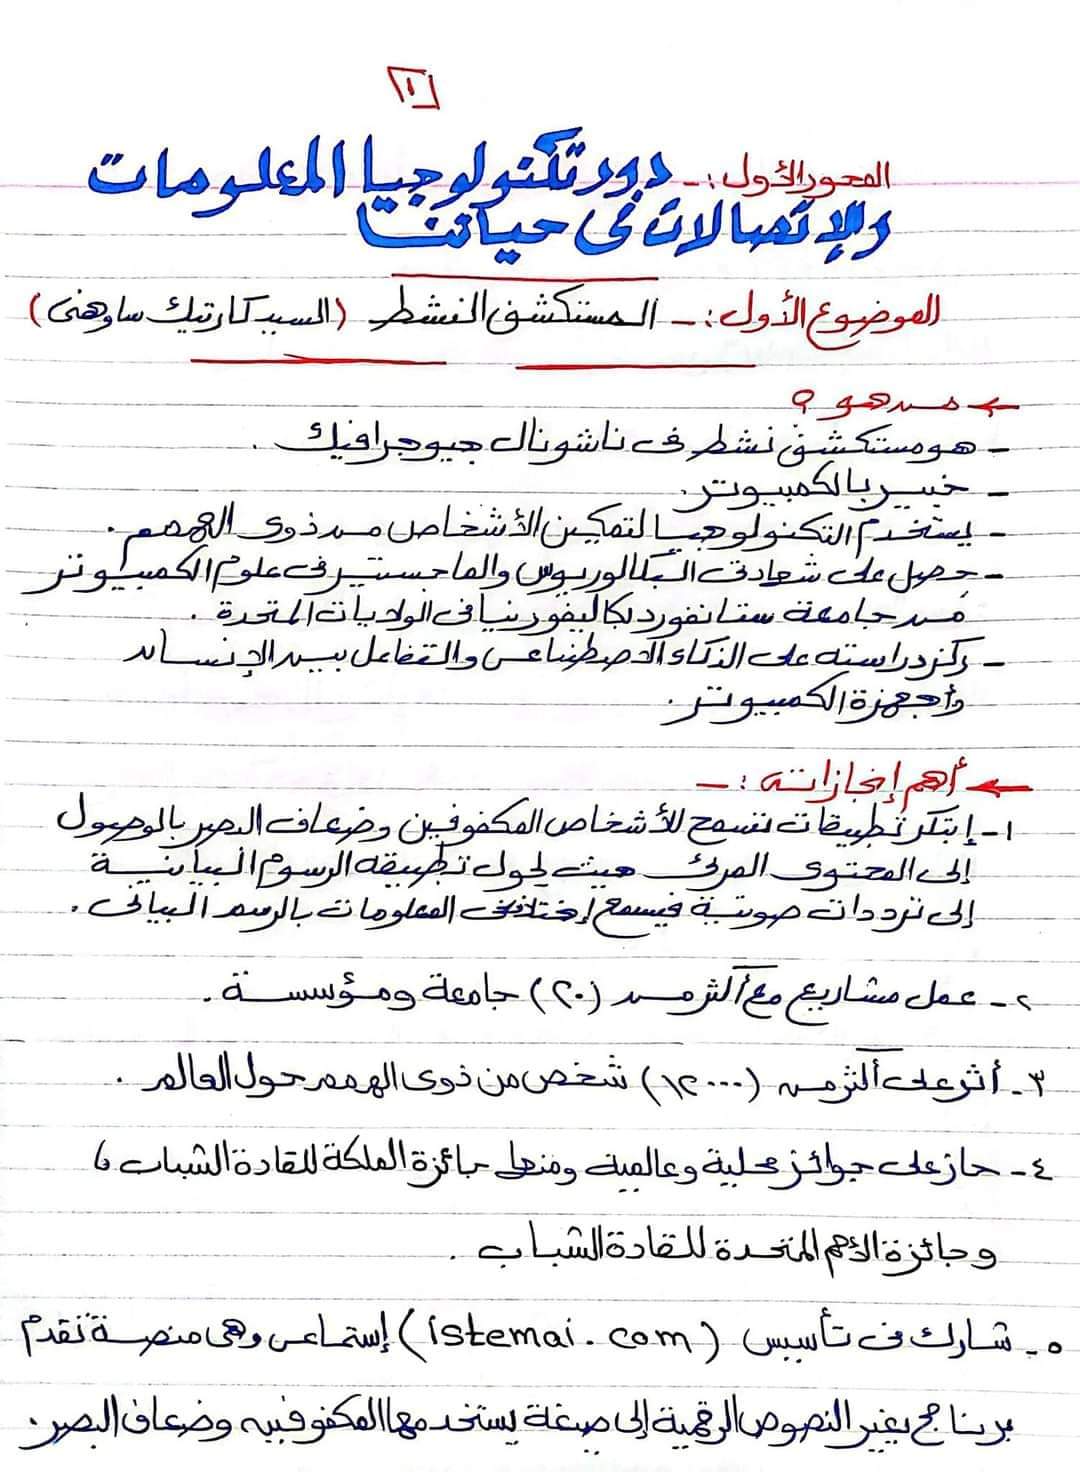 ١
المحور الأول :- دور تكنولوجيا المعلومات
والإتصالات فى حياتنا
الموضوع الأول :- المستكشف النشط (السيد كارتيك ساوهنى)
← من هو ؟
- هو مستكشف نشط فى ناشونال جيوجرافيك .
- خبير بالكمبيوتر.
- يستخدم التكنولوجيا لتمكين الأشخاص من ذوى الهمم .
- حصل على شهادتى البكالوريوس والماجستير فى علوم الكمبيوتر
من جامعة ستانفورد بكاليفورنيا فى الولايات المتحدة .
- ركز دراسته على الذكاء الاصطناعى والتفاعل بين الإنسان
وأجهزة الكمبيوتر.
← أهم إنجازاته :-
١- إبتكر تطبيقات تسمح للأشخاص المكفوفين وضعاف البصر بالوصول
إلى المحتوى المرئى حيث يحول تطبيقه الرسوم البيانية
إلى ترددات صوتية فيسمع إختلاف المعلومات بالرسم البيانى .
٢- عمل مشاريع مع أكثر من (٢٠) جامعة ومؤسسة .
٣- أثر على أكثر من (١٢٠٠٠) شخص من ذوى الهمم حول العالم .
٤- حاز على جوائز محلية وعالمية ومنها جائزة الملكة للقادة الشباب ،
وجائزة الأمم المتحدة للقادة الشباب .
٥- شارك فى تأسيس (istemai.com) إستماعى وهى منصة تقدم
برنامج يغير النصوص الرقمية إلى صيغة يستخدمها المكفوفين وضعاف البصر.